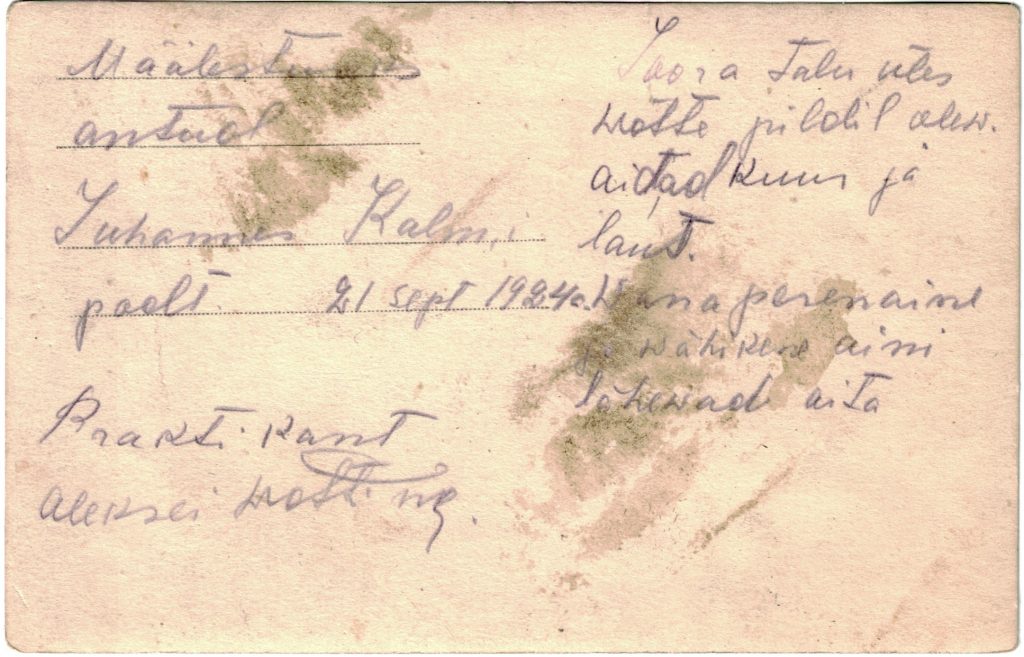 Määlestuses
antud
Juhannes Kalm
poolt. 21 sept 1924a.
Prakti kant
Aleksei Wotting.
Soora talu ües
wotte pildil olew.
aidad kuur ja
laut.
Wana perenaine
ja wähikene aini
lähewad aita